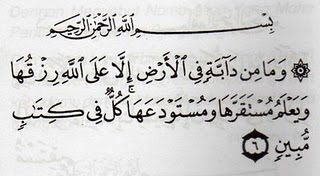 بِسْمِ اللَّهِ الرَّحْمَٰنِ الرَّحِيمِ
۞ وَمَا مِن دَآبَّةٍ فِى الْأَرْضِ إِلَّا عَلَى اللَّهِ رِزْقُهَا
وَيَعْلَمُ مُسْتَقَرَّهَا وَمُسْتَوْدَعَهَا ۚ كُلٌّ فِى كِتَٰبٍ
مُّبِينٍ ٦